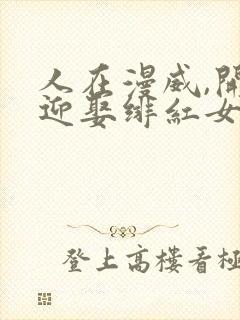 人在漫威,開
迎娶緋紅女
登上高樓看極